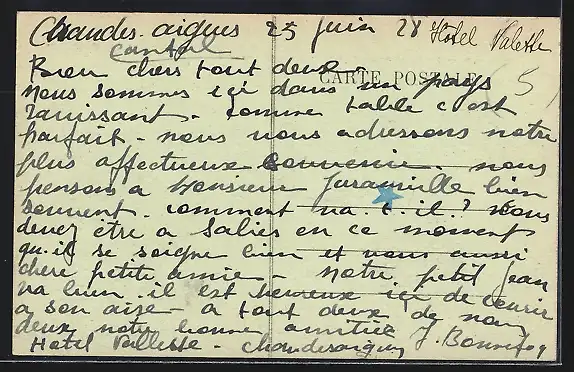 Chaudes-aigues 25 juin 28 Hôtel Valette
Cantal
Bien chers tout deux
CARTE POSTALE
nous sommes içi dans un pays
ravissant - comme table c'est
parfait - nous vous adressons notre
plus affectueux souvenir. nous
pensons a Monsieur bien
souvent. comment va-t-il? vous
devez être a Salies en ce moment
qu'il se soigne bien et vous aussi
chère petite amie - notre petit Jean
va bien. il est heureux içi de courir
a son aise - a tout deux de nous
deux notre bonne amitiée J.
Hotel Vallette - Chaudesaigues
5